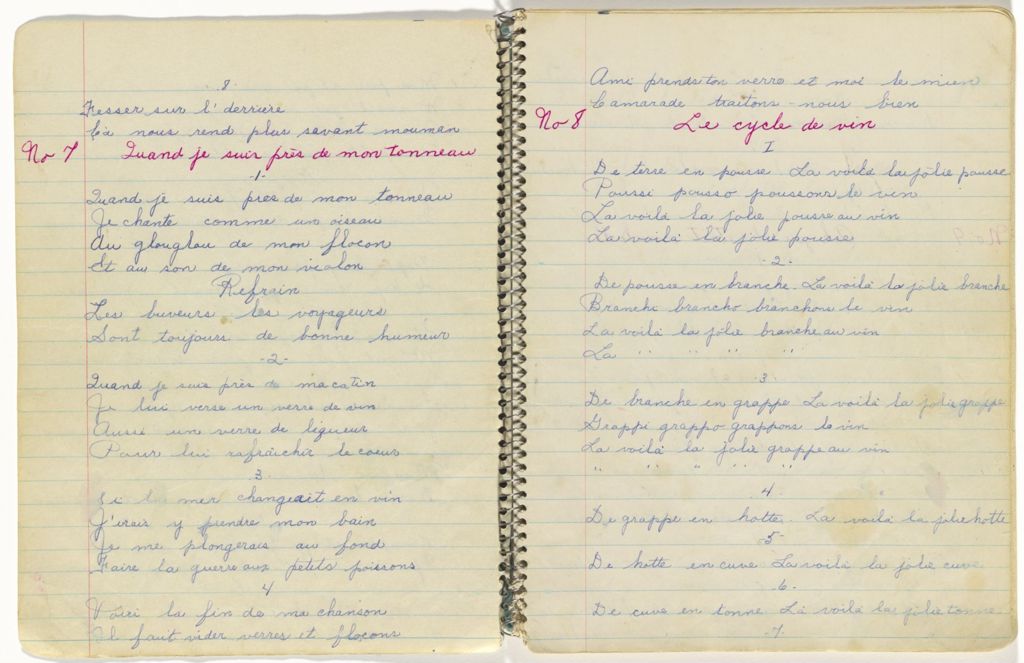 8
Fesser sur l'derriere
Ça nous rend plus savant mouman
No 7 Quand je suis près de mon tonneau
-1-
Quand je suis pres de mon tonneau
Je chante comme un oiseau
Au glouglou de mon flocon
Et au son de mon violon
Refrain
Les buveurs les voyageurs
Sont toujours de bonne humeur
-2-
Quand je suis près de ma catin
Je lui verse un verre de vin
Aussi un verre de liqueur
Pour lui rafraîchir le coeur
3
Si la mer changeait en vin
J'irais y prendre mon bain
Je me plongerais au fond
Faire la guerre aux petits poissons
4
Voici la fin de ma chanson
Il faut vider verres et flocons
Ami prends ton verre et moi le mien
Camarade traitons-nous bien
No 8 Le cycle de vin
I
De terre en pousse. La voilà la jolie pousse
Poussi pousso poussons le vin
La voilà la jolie pousse au vin
La voilà la jolie pousse
-2-
De pousse en branche. La voilà la jolie branche
Branchi brancho branchons le vin
La voilà la jolie branche au vin
La " " " " "
3
De branche en grappe La voilà la jolie grappe
Grappi grappo grappons le vin
La voilà la jolie grappe au vin
" " " " "
4
De grappe en hotte. La voilà la jolie hotte
-5-
De hotte en cuve La voilà la jolie cuve
-6-
De cuve en tonne La voilà la jolie tonne
-7-